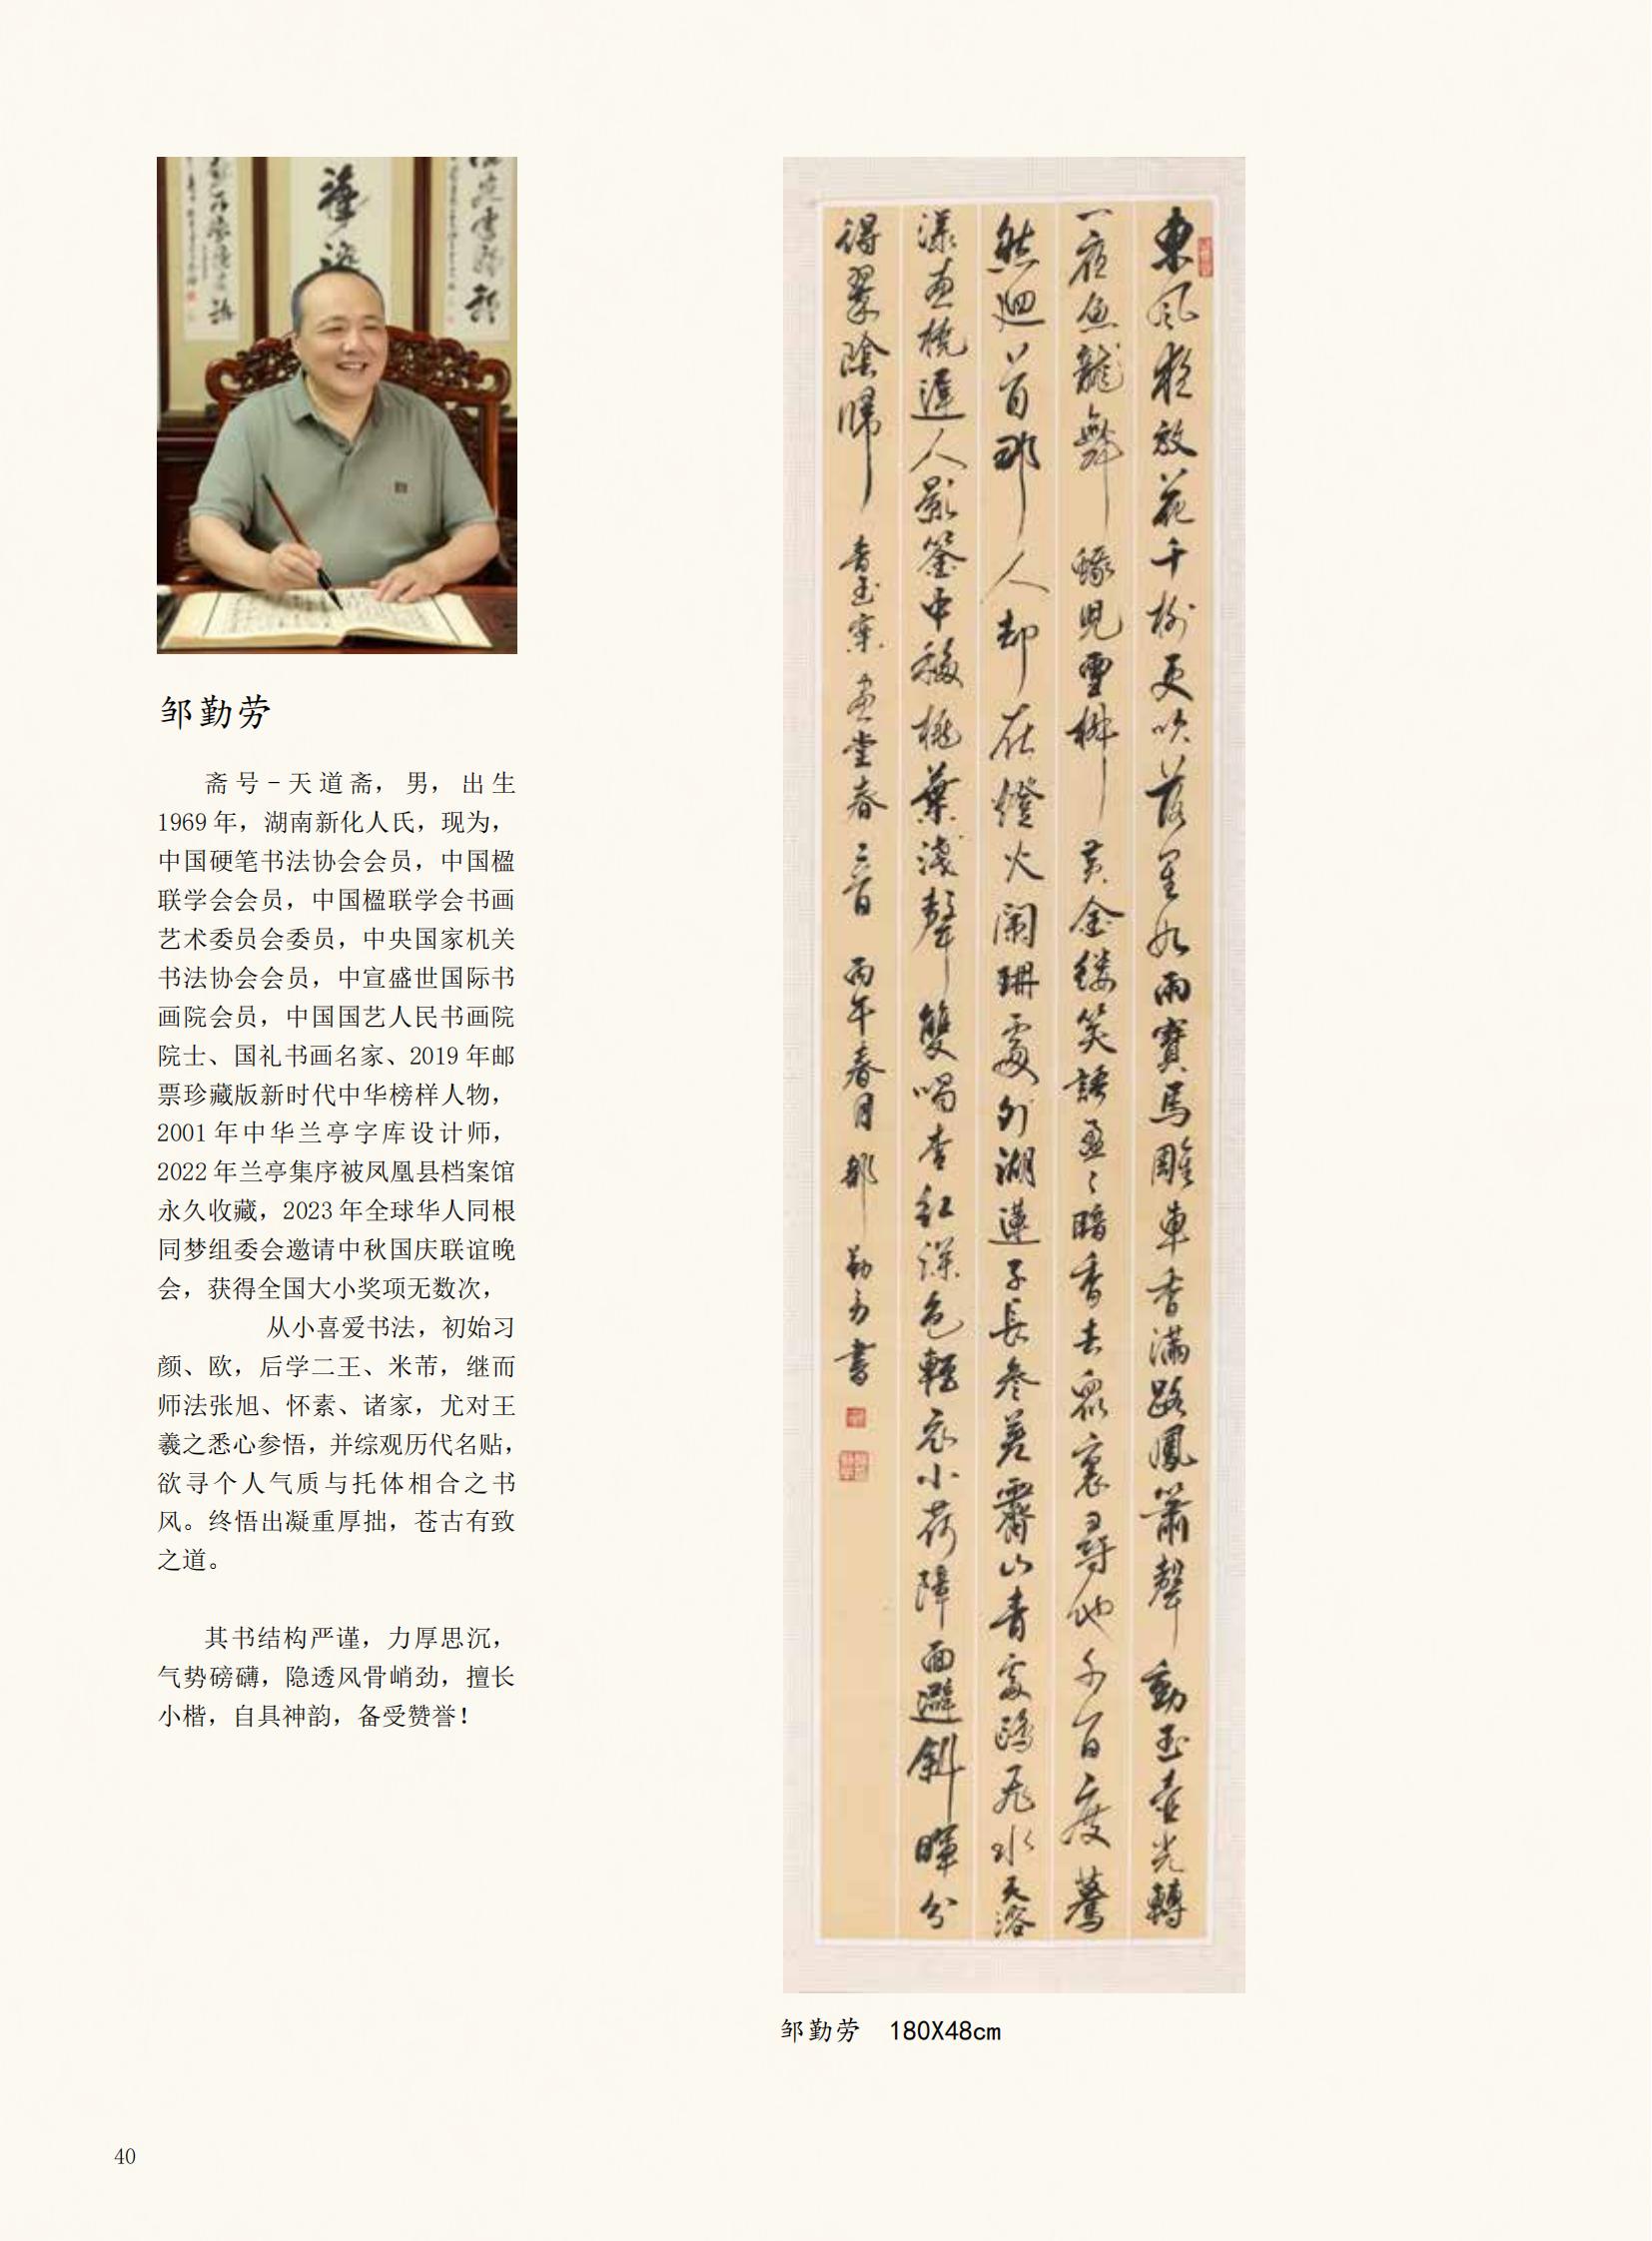 邹勤劳
斋号-天道斋，男，出生
1969年，湖南新化人氏，现为，
中国硬笔书法协会会员，中国楹
联学会会员，中国楹联学会书画
艺术委员会委员，中央国家机关
书法协会会员，中宣盛世国际书
画院会员，中国国艺人民书画院
院士、国礼书画名家、2019年邮
票珍藏版新时代中华榜样人物，
2001年中华兰亭字库设计师，
2022年兰亭集序被凤凰县档案馆
永久收藏，2023年全球华人同根
同梦组委会邀请中秋国庆联谊晚
会，获得全国大小奖项无数次，
从小喜爱书法，初始习
颜、欧，后学二王、米芾，继而
师法张旭、怀素、诸家，尤对王
羲之悉心参悟，并综观历代名贴，
欲寻个人气质与托体相合之书
风。终悟出凝重厚拙，苍古有致
之道。
其书结构严谨，力厚思沉，
气势磅礴，隐透风骨峭劲，擅长
小楷，自具神韵，备受赞誉！
東風夜放花千樹更吹落星如雨寶馬雕車香滿路鳳簫聲動玉壺光轉
一夜魚龍舞蛾兒雪柳黃金縷笑語盈々暗香去眾裏尋他千百度驀
然迴首那人却在燈火闌珊處外湖蓮子長參差霽山青處鷗飛水天溶
漾畫橈遲人影鑒中移桃葉淺聲雙唱杏紅深色輕衣小荷障面避斜暉分
得翠陰歸 青玉案 畫堂春 二首 丙午春月 鄒勤劳書
邹勤劳 180X48cm
40